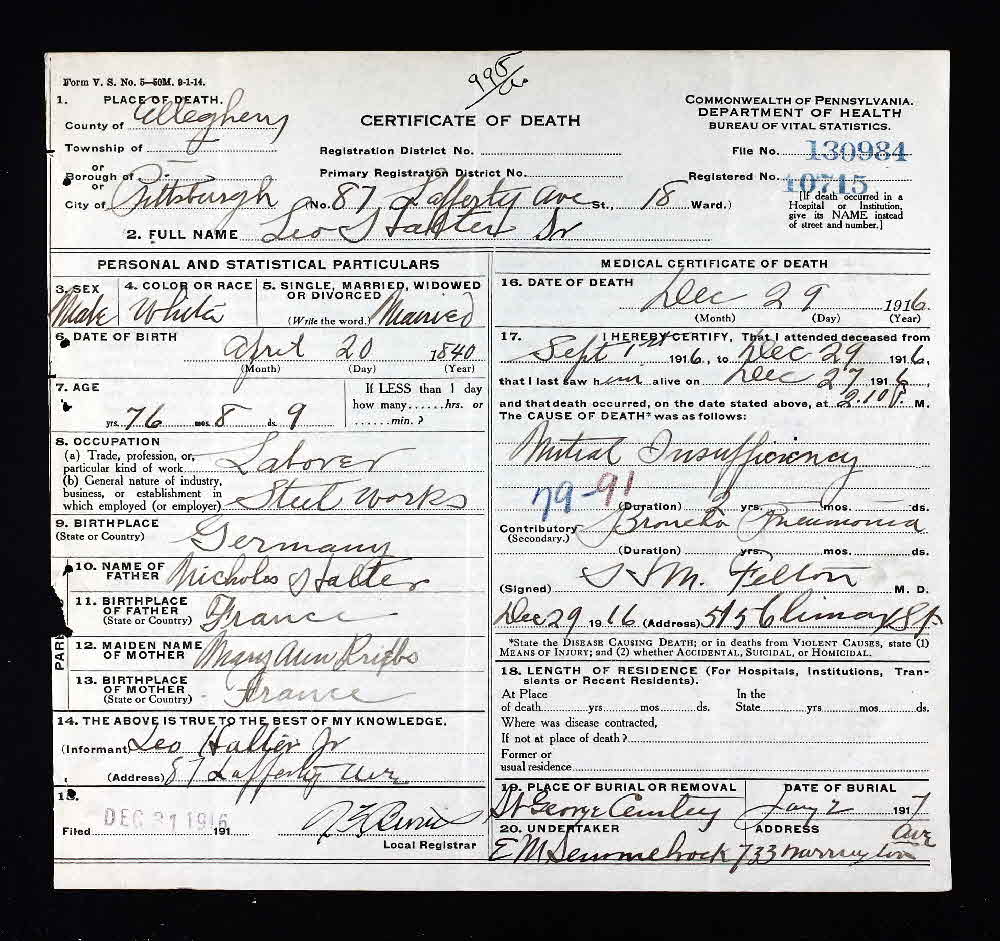 Form V. S. No. 5—50M. 9-1-14.
995
1. PLACE OF DEATH.
County of Allegheny
Township of
or
Borough of
or
City of Pittsburgh
CERTIFICATE OF DEATH
Registration District No.
Primary Registration District No.
No. 87 Lafferty Ave St., 18 Ward.)
COMMONWEALTH OF PENNSYLVANIA.
DEPARTMENT OF HEALTH
BUREAU OF VITAL STATISTICS.
File No. 130984
Registered No. 10715
[If death occurred in a
Hospital or Institution,
give its NAME instead
of street and number.]
2. FULL NAME Leo Halter Sr
PERSONAL AND STATISTICAL PARTICULARS
3. SEX
Male
4. COLOR OR RACE
White
5. SINGLE, MARRIED, WIDOWED
OR DIVORCED
(Write the word.) Married
6. DATE OF BIRTH
April 20 1840
(Month) (Day) (Year)
7. AGE
76 yrs. 8 mos. 9 ds.
If LESS than 1 day
how many......hrs. or
......min.?
8. OCCUPATION
(a) Trade, profession, or
particular kind of work Laborer
(b) General nature of industry,
business, or establishment in
which employed (or employer) Steel Works
9. BIRTHPLACE
(State or Country) Germany
10. NAME OF
FATHER Nicholas Halter
11. BIRTHPLACE
OF FATHER
(State or Country) France
PAR
12. MAIDEN NAME
OF MOTHER Mary Ann
13. BIRTHPLACE
OF MOTHER
(State or Country) France
14. THE ABOVE IS TRUE TO THE BEST OF MY KNOWLEDGE.
(Informant) Leo Halter Jr
(Address) 87 Lafferty Ave
15.
Filed DEC 31 1916 191
Local Registrar
MEDICAL CERTIFICATE OF DEATH
16. DATE OF DEATH
Dec 29 1916
(Month) (Day) (Year)
17. I HEREBY CERTIFY, That I attended deceased from
Sept 1st 1916, to Dec 29 1916,
that I last saw him alive on Dec 27 1916,
and that death occurred, on the date stated above, at 2.10 P. M.
The CAUSE OF DEATH* was as follows:
Mitral Insufficiency
79-91
(Duration) 2 yrs. mos. ds.
Contributory Broncho Pneumonia
(Secondary.)
(Duration) yrs. mos. ds.
(Signed) M. Felton M. D.
Dec 29 1916 (Address) 515 Climax St
*State the DISEASE CAUSING DEATH; or in deaths from VIOLENT CAUSES, state (1)
MEANS OF INJURY; and (2) whether ACCIDENTAL, SUICIDAL, or HOMICIDAL.
18. LENGTH OF RESIDENCE (For Hospitals, Institutions, Tran-
sients or Recent Residents).
At Place In the
of death yrs. mos. ds. State yrs. mos. ds.
Where was disease contracted,
If not at place of death?
Former or
usual residence
19. PLACE OF BURIAL OR REMOVAL
St George Cemetery
DATE OF BURIAL
Jany 2 1917
20. UNDERTAKER
E M
ADDRESS
733 Warrington Ave